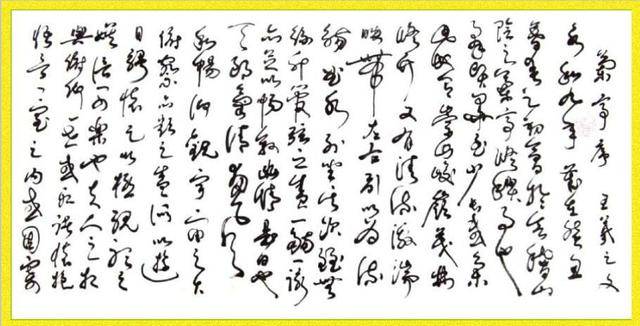 蘭亭序 王羲之文
永和九年歲在癸丑
暮春之初會於會稽山
陰之蘭亭修禊事也
群賢畢至少長咸集
此地有崇山峻嶺茂林
修竹又有清流激湍
映帶左右引以為流
觴曲水列坐其次雖無
絲竹管弦之盛一觴一詠
亦足以暢敘幽情是日也
天朗氣清惠風
和暢仰觀宇宙之大
俯察品類之盛所以遊
目騁懷足以極視聽之
娛信可樂也夫人之相
與俯仰一世或取諸懷抱
悟言一室之內或因寄